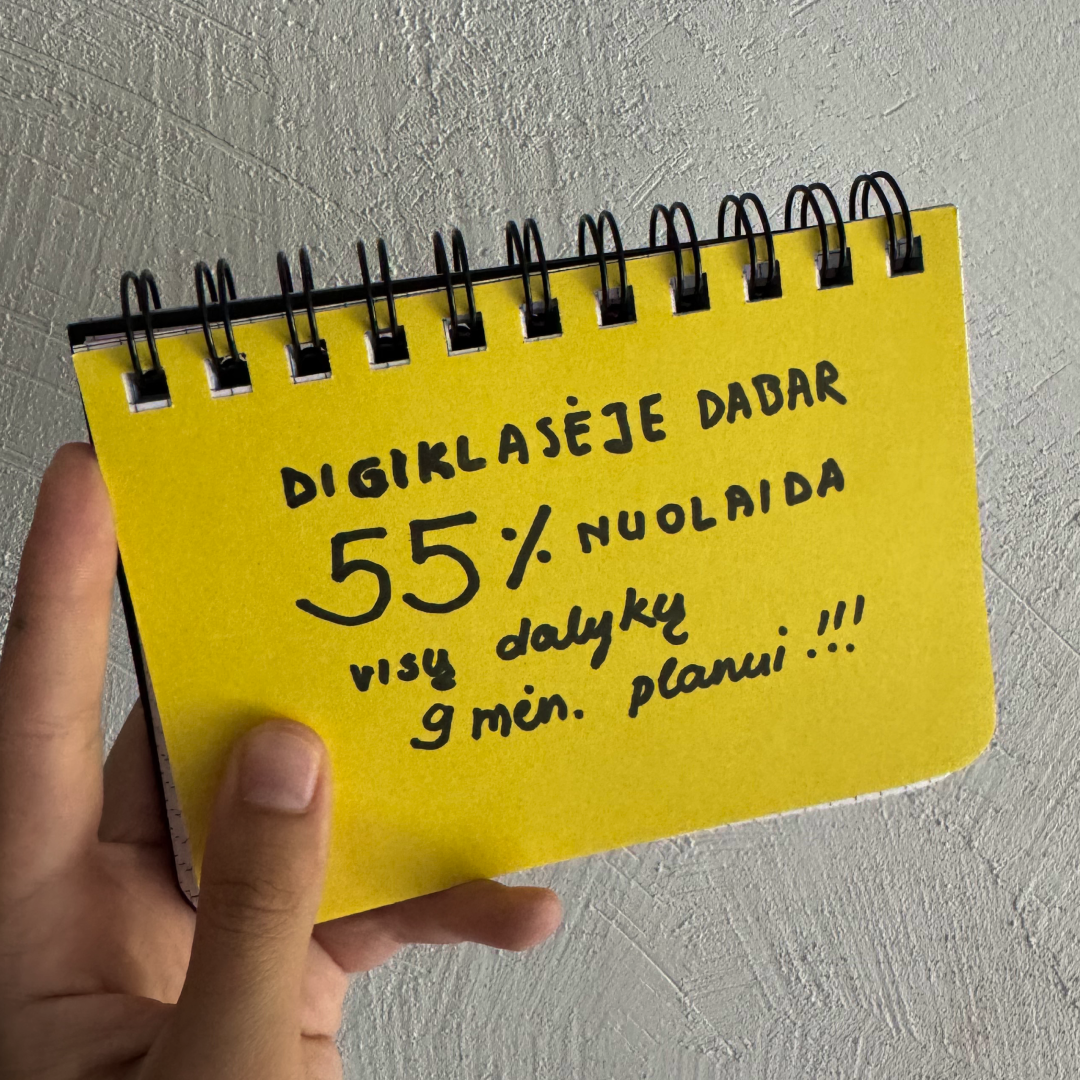 DIGIKLASĖJE DABAR
55% NUOLAIDA
visų dalykų
9 mėn. planui !!!